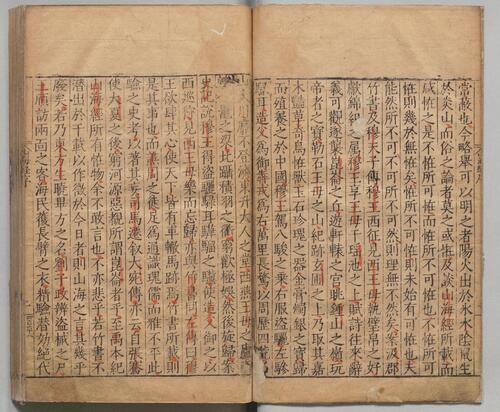 常蔽也今略舉可以明之者陽火出於氷水陰鼠生
於炎山而俗之論者莫之或怪及談山海經所載而
咸怪之是不怪所可怪而怪所不可怪也不怪所可
怪則幾於無怪矣怪所不可怪則未始有可怪也夫
能然所不可不可所不可然則理無不然矣案汲郡
竹書及穆天子傳穆王西征見西王母執璧帛之好
獻錦組之屬穆王享王母于瑶池之上賦詩往來辭
義可觀遂襲崑崙之丘遊軒轅之宮眺鍾山之嶺玩
帝者之寶勒石王母之山紀跡玄圃之上乃取其嘉
木豔草奇鳥怪獸玉石珍瑰之器金膏燭銀之寶歸
而殖養之於中國穆王駕八駿之乘右服盜驪左驂
騄耳造父為御犇戎為右萬里長騖以周歷四荒
名山大川靡不登濟東升大人之堂西燕王母之廬
黿鼉之梁北躡積羽之衢窮歡極娛然後旋歸案
史記說穆王得盜驪騄耳驊騮之驥使造父御之以
西巡狩見西王母樂而忘歸亦與竹書同左傳曰穆
王欲肆其心使天下皆有車轍馬跡焉竹書所載則
是其事也而譙周之徒足為通識瑰儒而雅不平此
驗之史考以著其妄司馬遷叙大宛傳亦云自張騫
使大夏之後窮河源惡覩所謂崑崙者乎至禹本紀
山海經所有怪物余不敢言也不亦悲乎若竹書不
潛出於千載以作徵於今日者則山海之言其幾乎
廢矣若乃東方生曉畢方之名劉子政辨盜械之尸
王頎訪兩面之客海民獲長臂之衣精驗潜効絶代